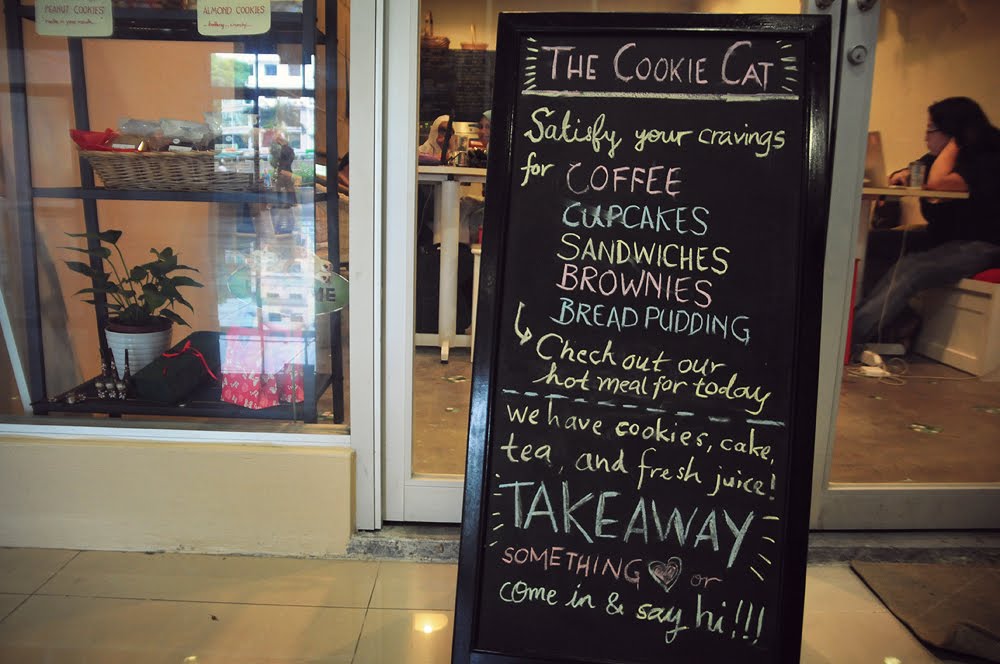 PEANUT COOKIES
ALMOND COOKIES
THE COOKIE CAT
Satisfy your cravings
for COFFEE
CUPCAKES
SANDWICHES
BROWNIES
BREAD PUDDING
Check out our
hot meal for today
we have cookies, cake,
tea, and fresh juice!
TAKEAWAY
SOMETHING or
come in & say hi!!!